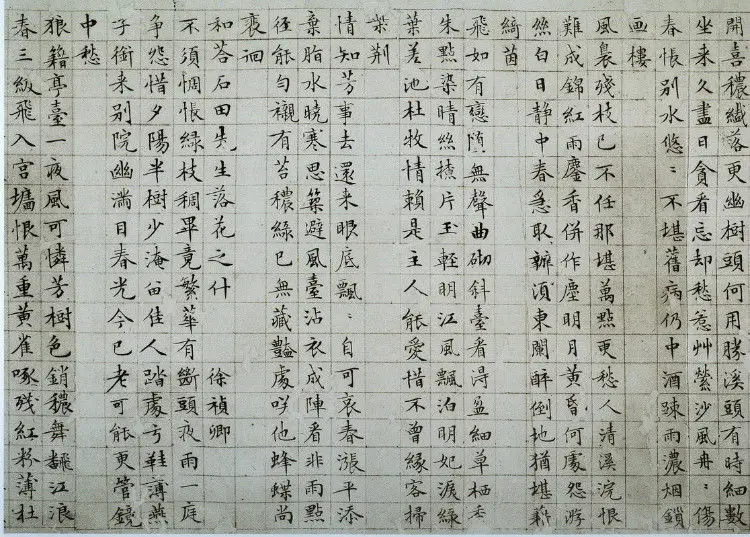 開喜穠纖落更幽樹頭何用勝溪頭有時細數
坐来久盡日貪看忘却愁惹艸縈沙風冉〻傷
春悵別水悠〻不堪舊病仍中酒踈雨濃烟鎖
画樓
風裊殘枝已不任那堪萬點更愁人清溪浣恨
難成錦紅雨鏖香併作塵明月黄昏何處怨游
絲白日静中春急取辦湏東闌醉倒地猶堪藉
綺茵
飛如有戀墮無聲曲砌斜臺看淂盈細草栖
朱點染晴絲撩片玉輕明江風飄泊明妃淚綠
葉差池杜牧情賴是主人能愛惜不曾緣客掃
柴荆
情知芳事去還来眼底飄〻自可哀春漲平添
棄脂水曉寒思築避風臺沾衣成陣看非雨點
徑能勻襯有苔穠綠已無藏艷處咲他蜂蝶尚
裵徊
和荅石田先生落花之什 徐禎卿
不須惆悵綠枝稠畢竟繁華有斷頭夜雨一庭
争怨惜夕陽半樹少淹留佳人踏處弓鞋薄燕
子銜来別院幽滿目春光今已老可能更管鏡
中愁
狼籍亭臺一夜風可憐芳樹色銷穠舞飜江浪
春三級飛入宫墻恨萬重黄雀啄殘紅粉薄杜